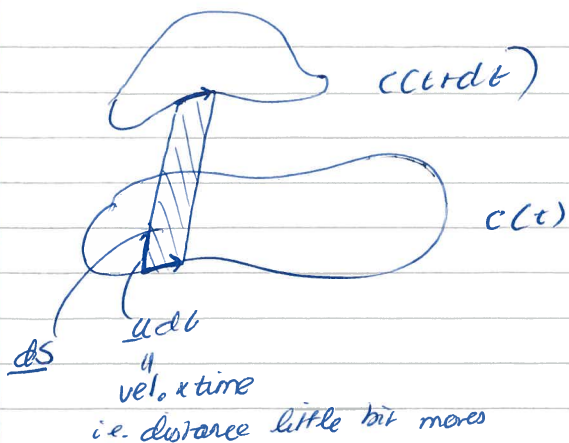 C(t+dt)
C(t)
u dt
dS
"
vel. x time
i.e. distance little bit moves